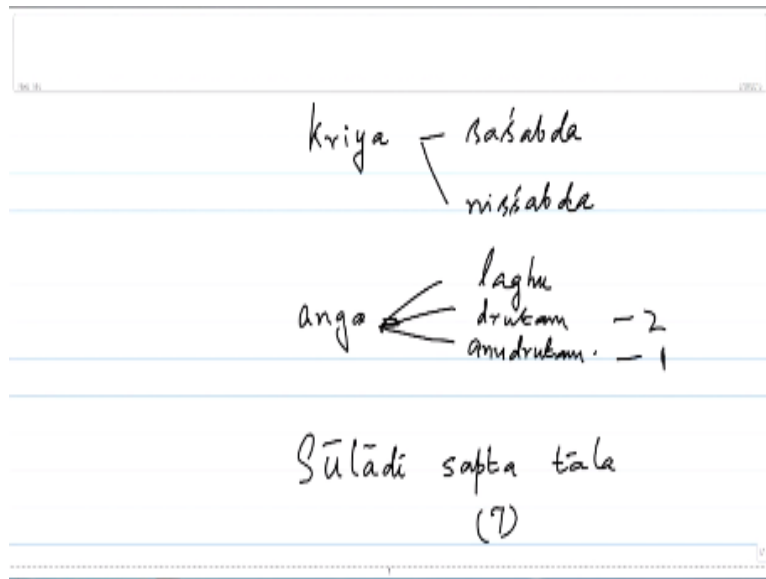 kriya - saśabda
nisśabda
anga laghu
drutam - 2
anudrutam. - 1
Sūlādi sapta tāla
(7)